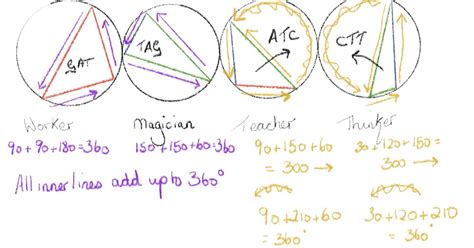 GAT TAG ATC CTT
Worker Magician Teacher Thinker
90+90+180=360 150+150+60=360 90+150+60 30+120+150=
= 300 → 300 →
All inner lines add up to 360°
90+210+60 30+120+210
= 360° = 360°